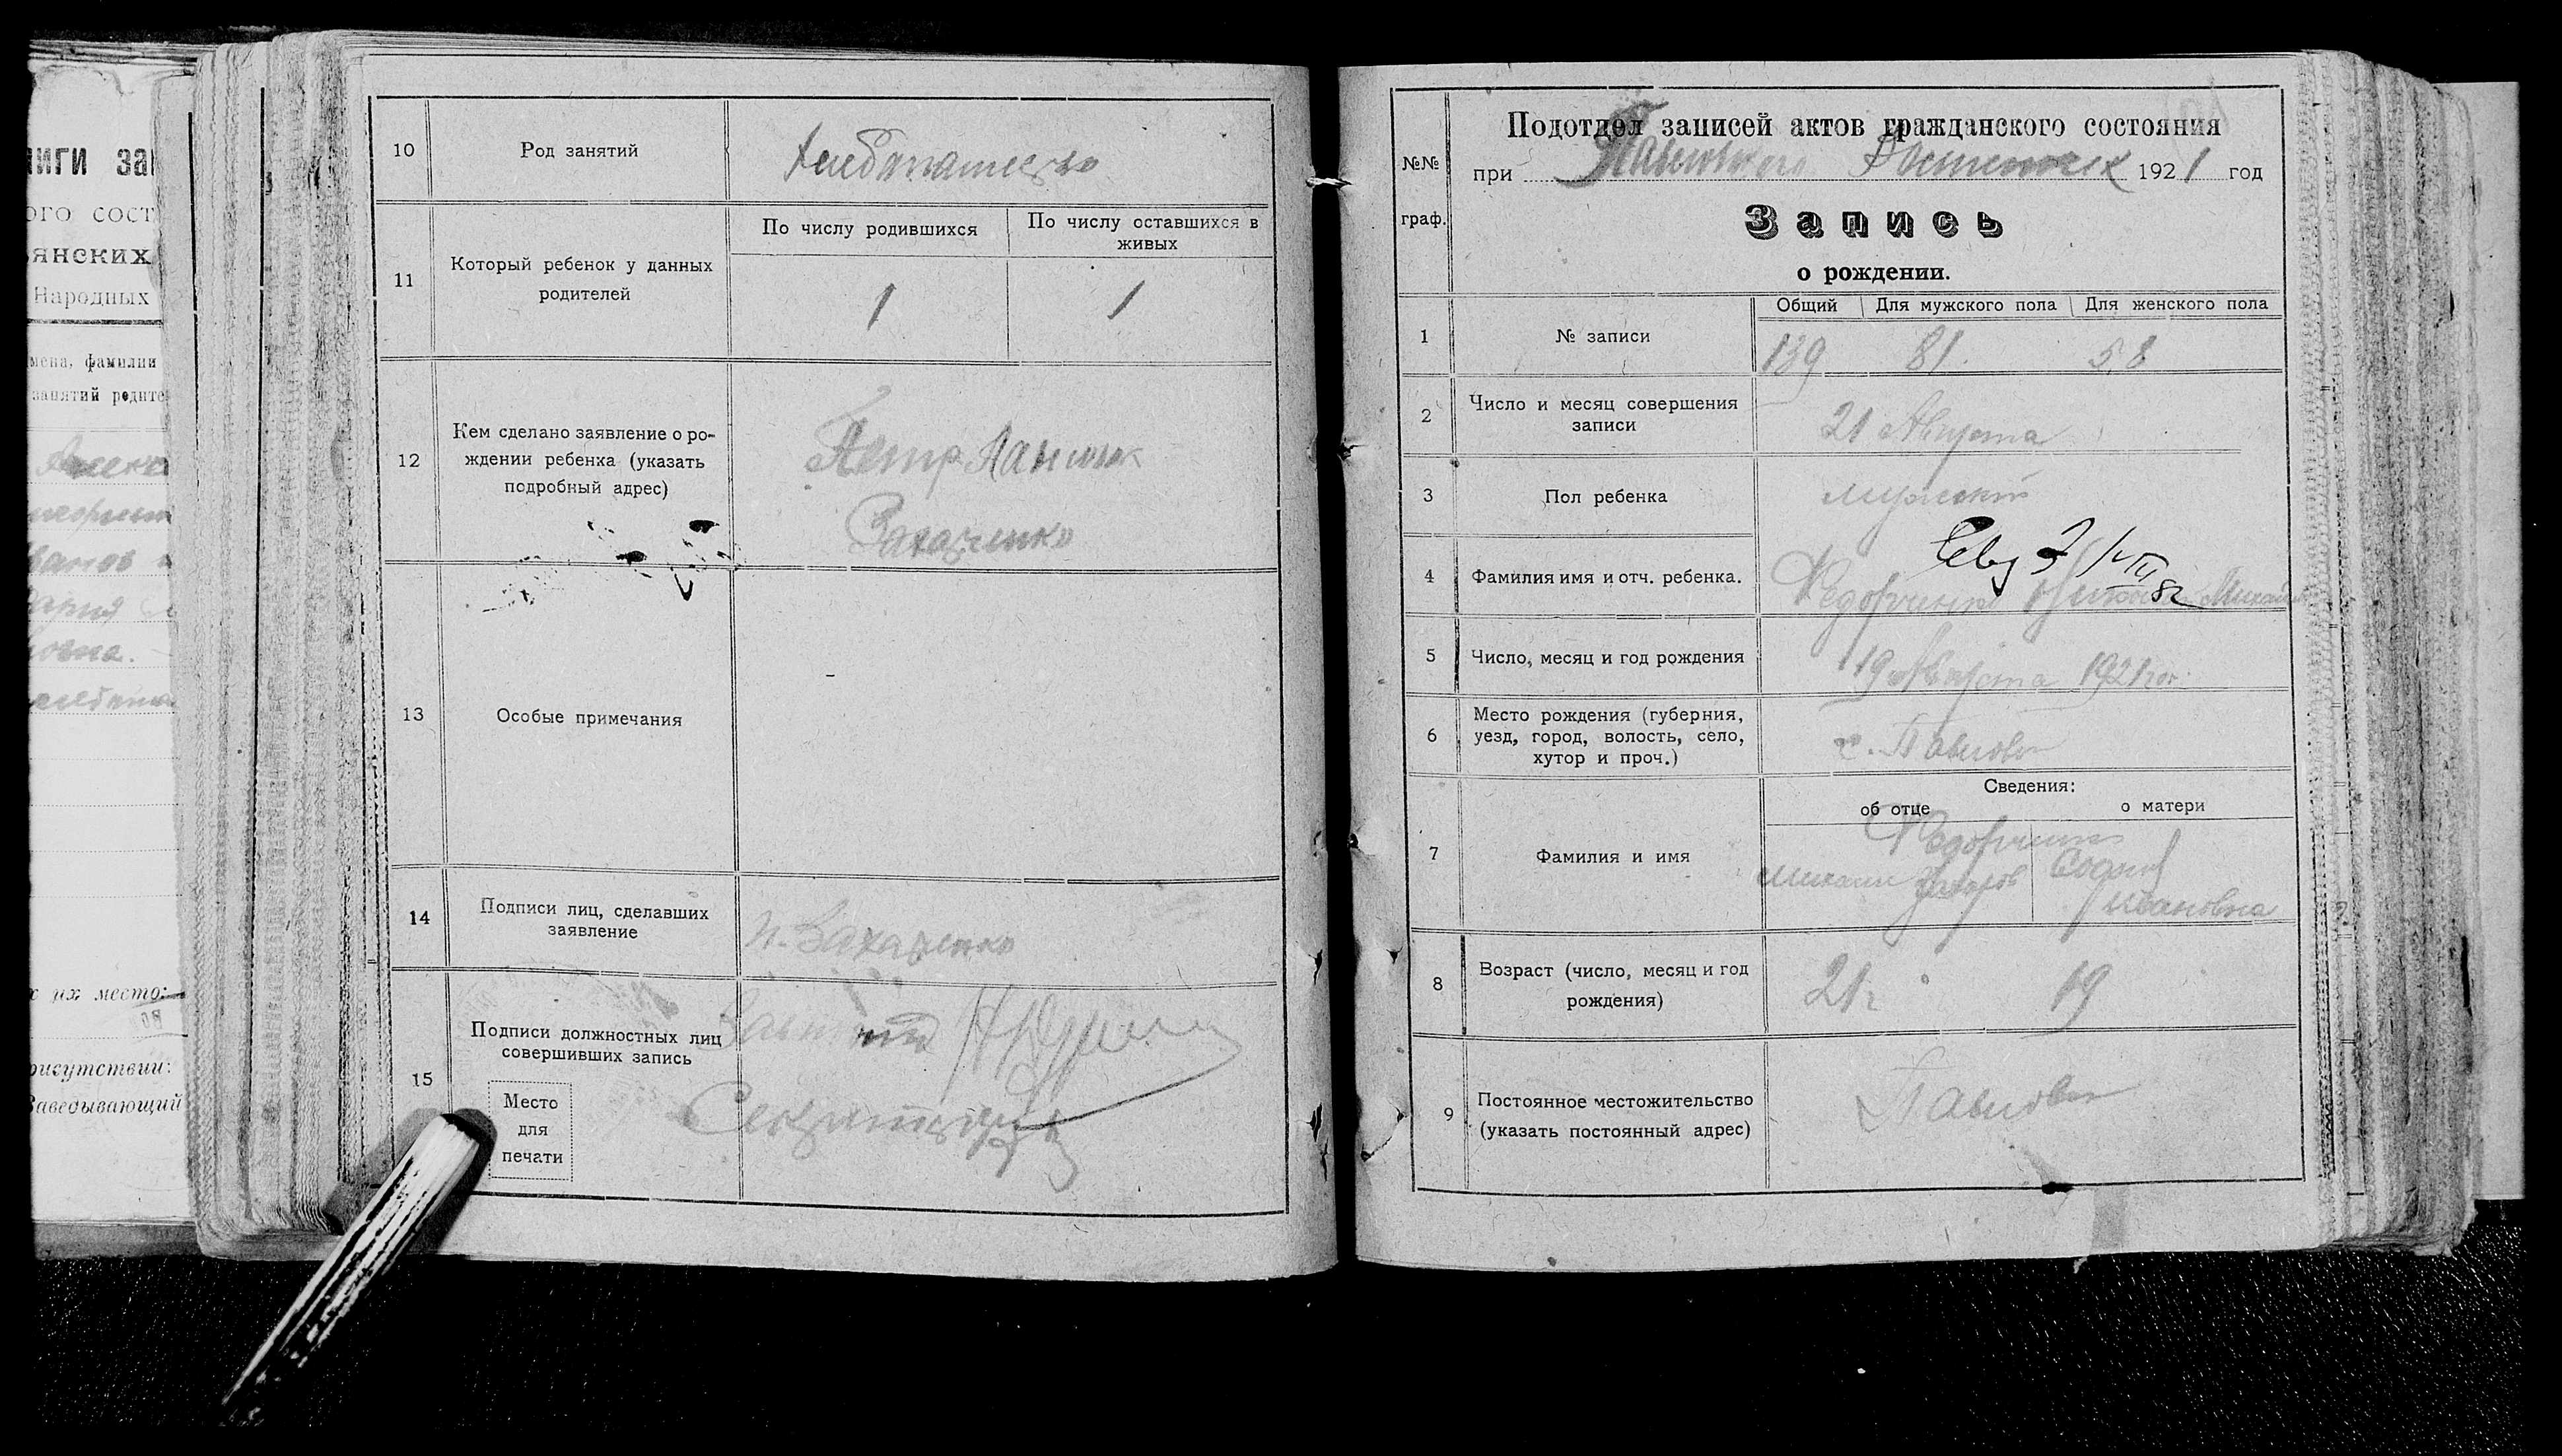 ниги за
ого сост
янских
Народных
мена, фамилии
занятий родите
овна.
х их место:
рисутствии:
Заведывающий
10 Род занятий Хлебопашество
11 Который ребенок у данных
родителей
По числу родившихся По числу оставшихся в
живых
1 1
12 Кем сделано заявление о ро-
ждении ребенка (указать
подробный адрес)
Петр
Захарченко
13 Особые примечания
14 Подписи лиц, сделавших
заявление
П. Захарченко
15 Подписи должностных лиц
совершивших запись
Место
для
печати
Секретарь
№№
граф.
Подотдел записей актов гражданского состояния
при Павловском 1921 год
Запись
о рождении.
Общий Для мужского пола Для женского пола
1 № записи 139 81. 58
2 Число и месяц совершения
записи
21 Августа
3 Пол ребенка мужской
4 Фамилия имя и отч. ребенка. Федорченко Михайл
5 Число, месяц и год рождения 19 Августа 1921 г.
6 Место рождения (губерния,
уезд, город, волость, село,
хутор и проч.)
с. Павловк
Сведения:
об отце о матери
7 Фамилия и имя
Федорченко
Михаил Захаров София
Ивановна
8 Возраст (число, месяц и год
рождения)
21 г 19
9 Постоянное местожительство
(указать постоянный адрес)
Павловк